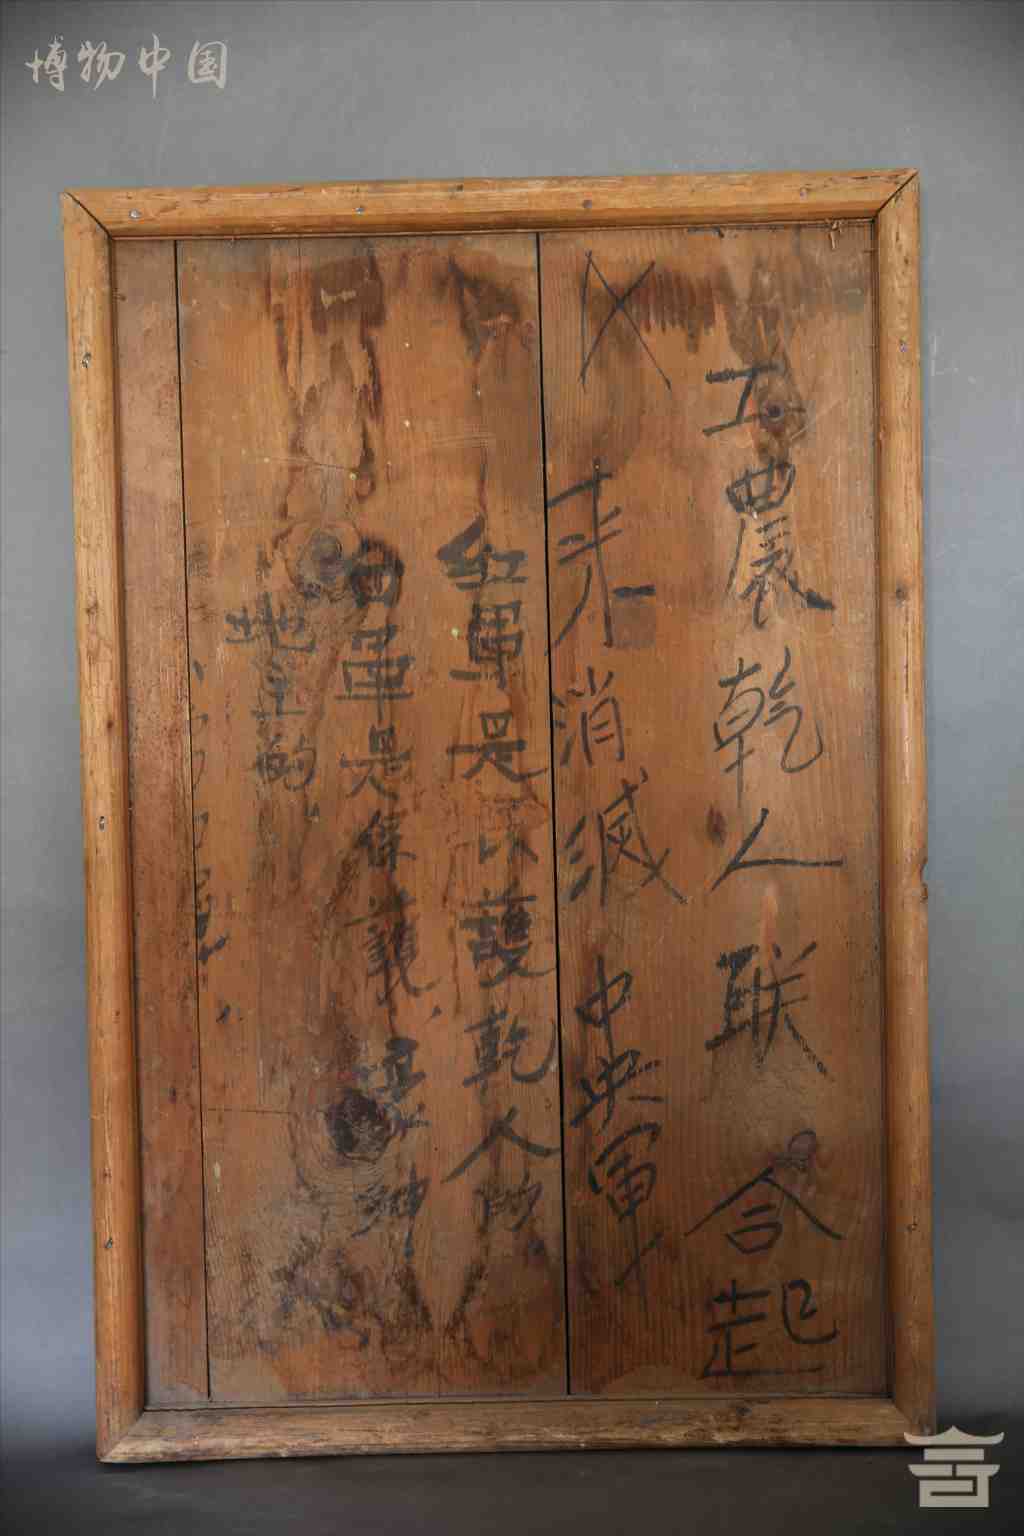 博物中国
工農乾人联合起
来消滅中央軍
紅軍是保護乾人的
白軍是保護豪紳
地主的